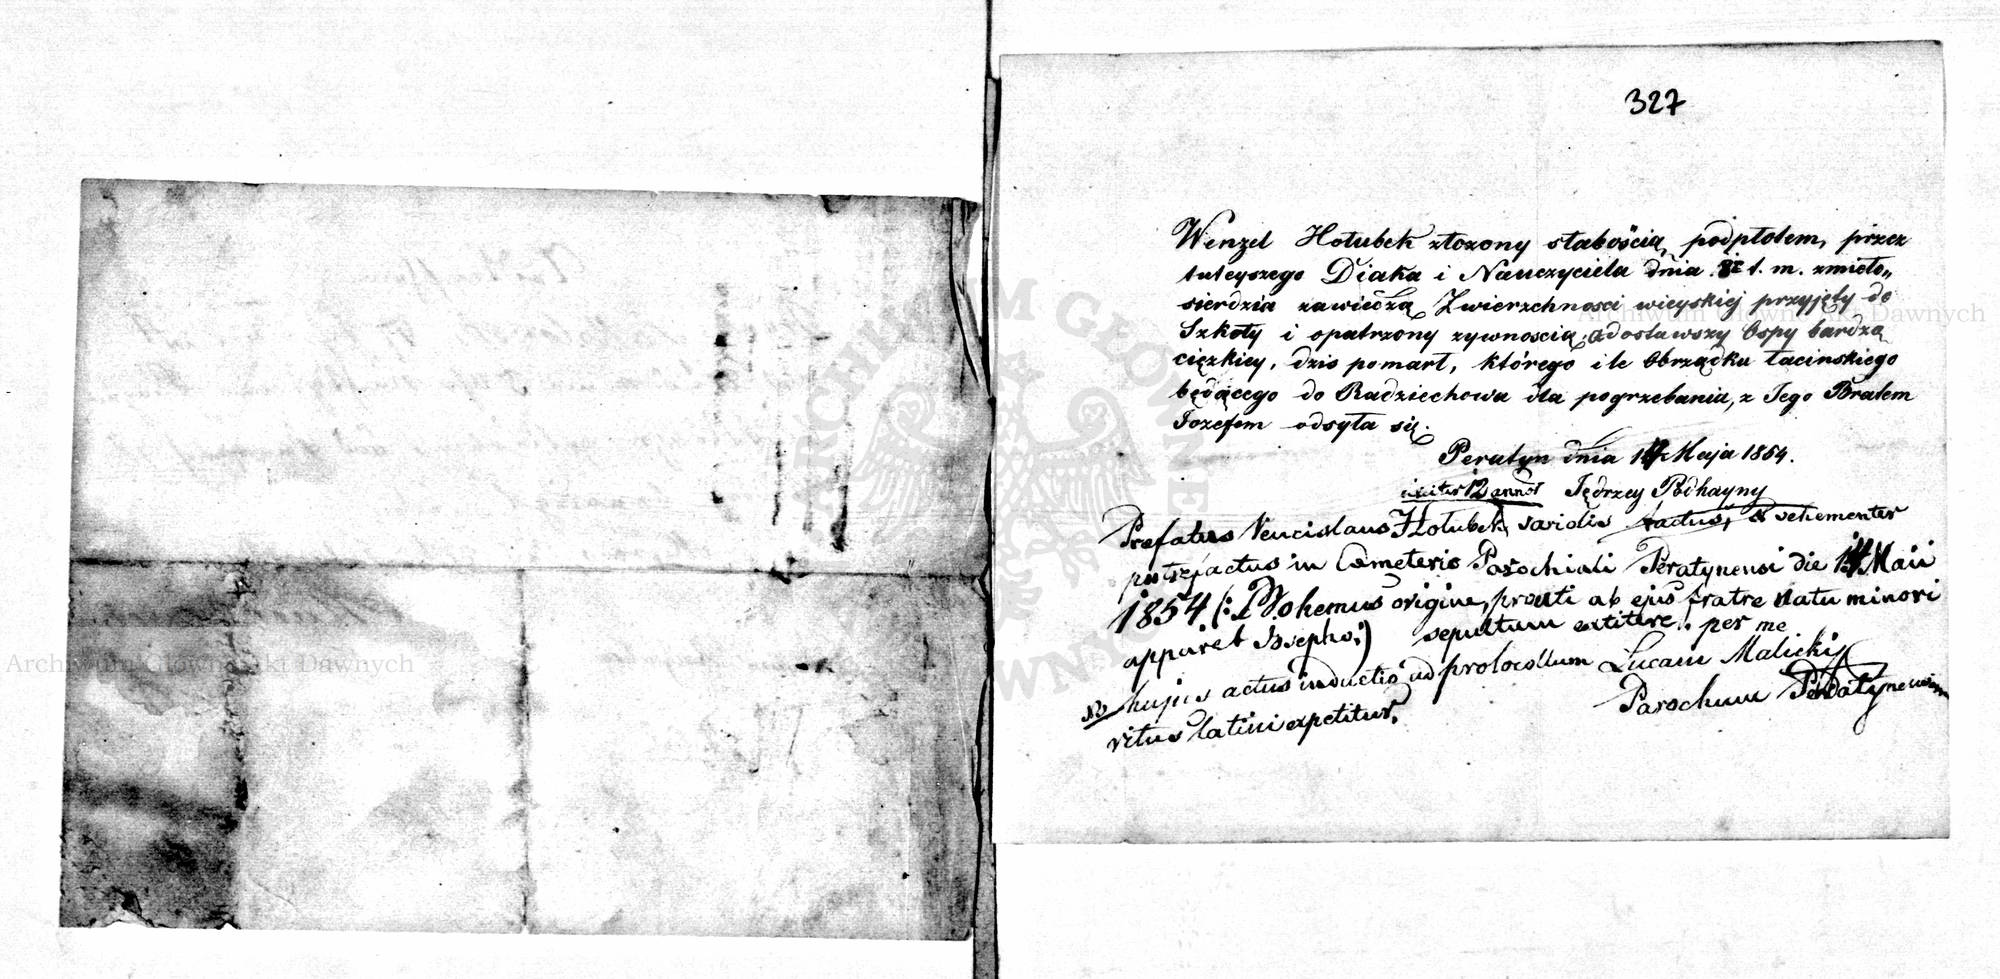 327
Wenzel Hołubek złożony słabością podpłotem, przez
tuteyszego Diaka i Nauczyciela dnia 8º t. m. zmiło„
sierdzia zawiedzą Zwierzchnosci wieyskiej przyjęty do
Szkoły i opatrzony zywnoscią, adostawszy Ospy bardzą
cięzkiey, dzis pomarł, którego ile Obrządku łacinskiego
będącego do Radziechowa dla pogrzebania, z Jego Bratem
Jozefem odsyła się.
Peratyn dnia Maja 1854.
circiter 12 annos Jędrzey Podhayny
Prefatus Venceslaus Hołubek, variolis tactus, & vehementer
putrefactus in Cemeterio Parochiali Peratynensi die 14 Maii
1854 (: Bohemus origine, prouti ab ejus fratre natu minori
apparet Josepho:) sepultum extitere. per me
NB hujus actus inductio ad protocollum Lucam Malicki
ritus latini expetitur. Parochum Peratynensem
Archiwum Główne Akt Dawnych
Archiwum Główne Akt Dawnych
ARCHIWUM GŁÓWNE